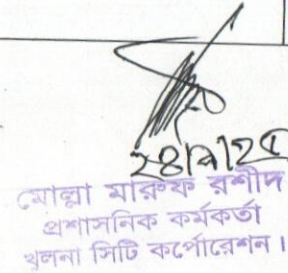 ২৪/৭/২৫
মোল্লা মারুফ রশীদ
প্রশাসনিক কর্মকর্তা
খুলনা সিটি কর্পোরেশন।